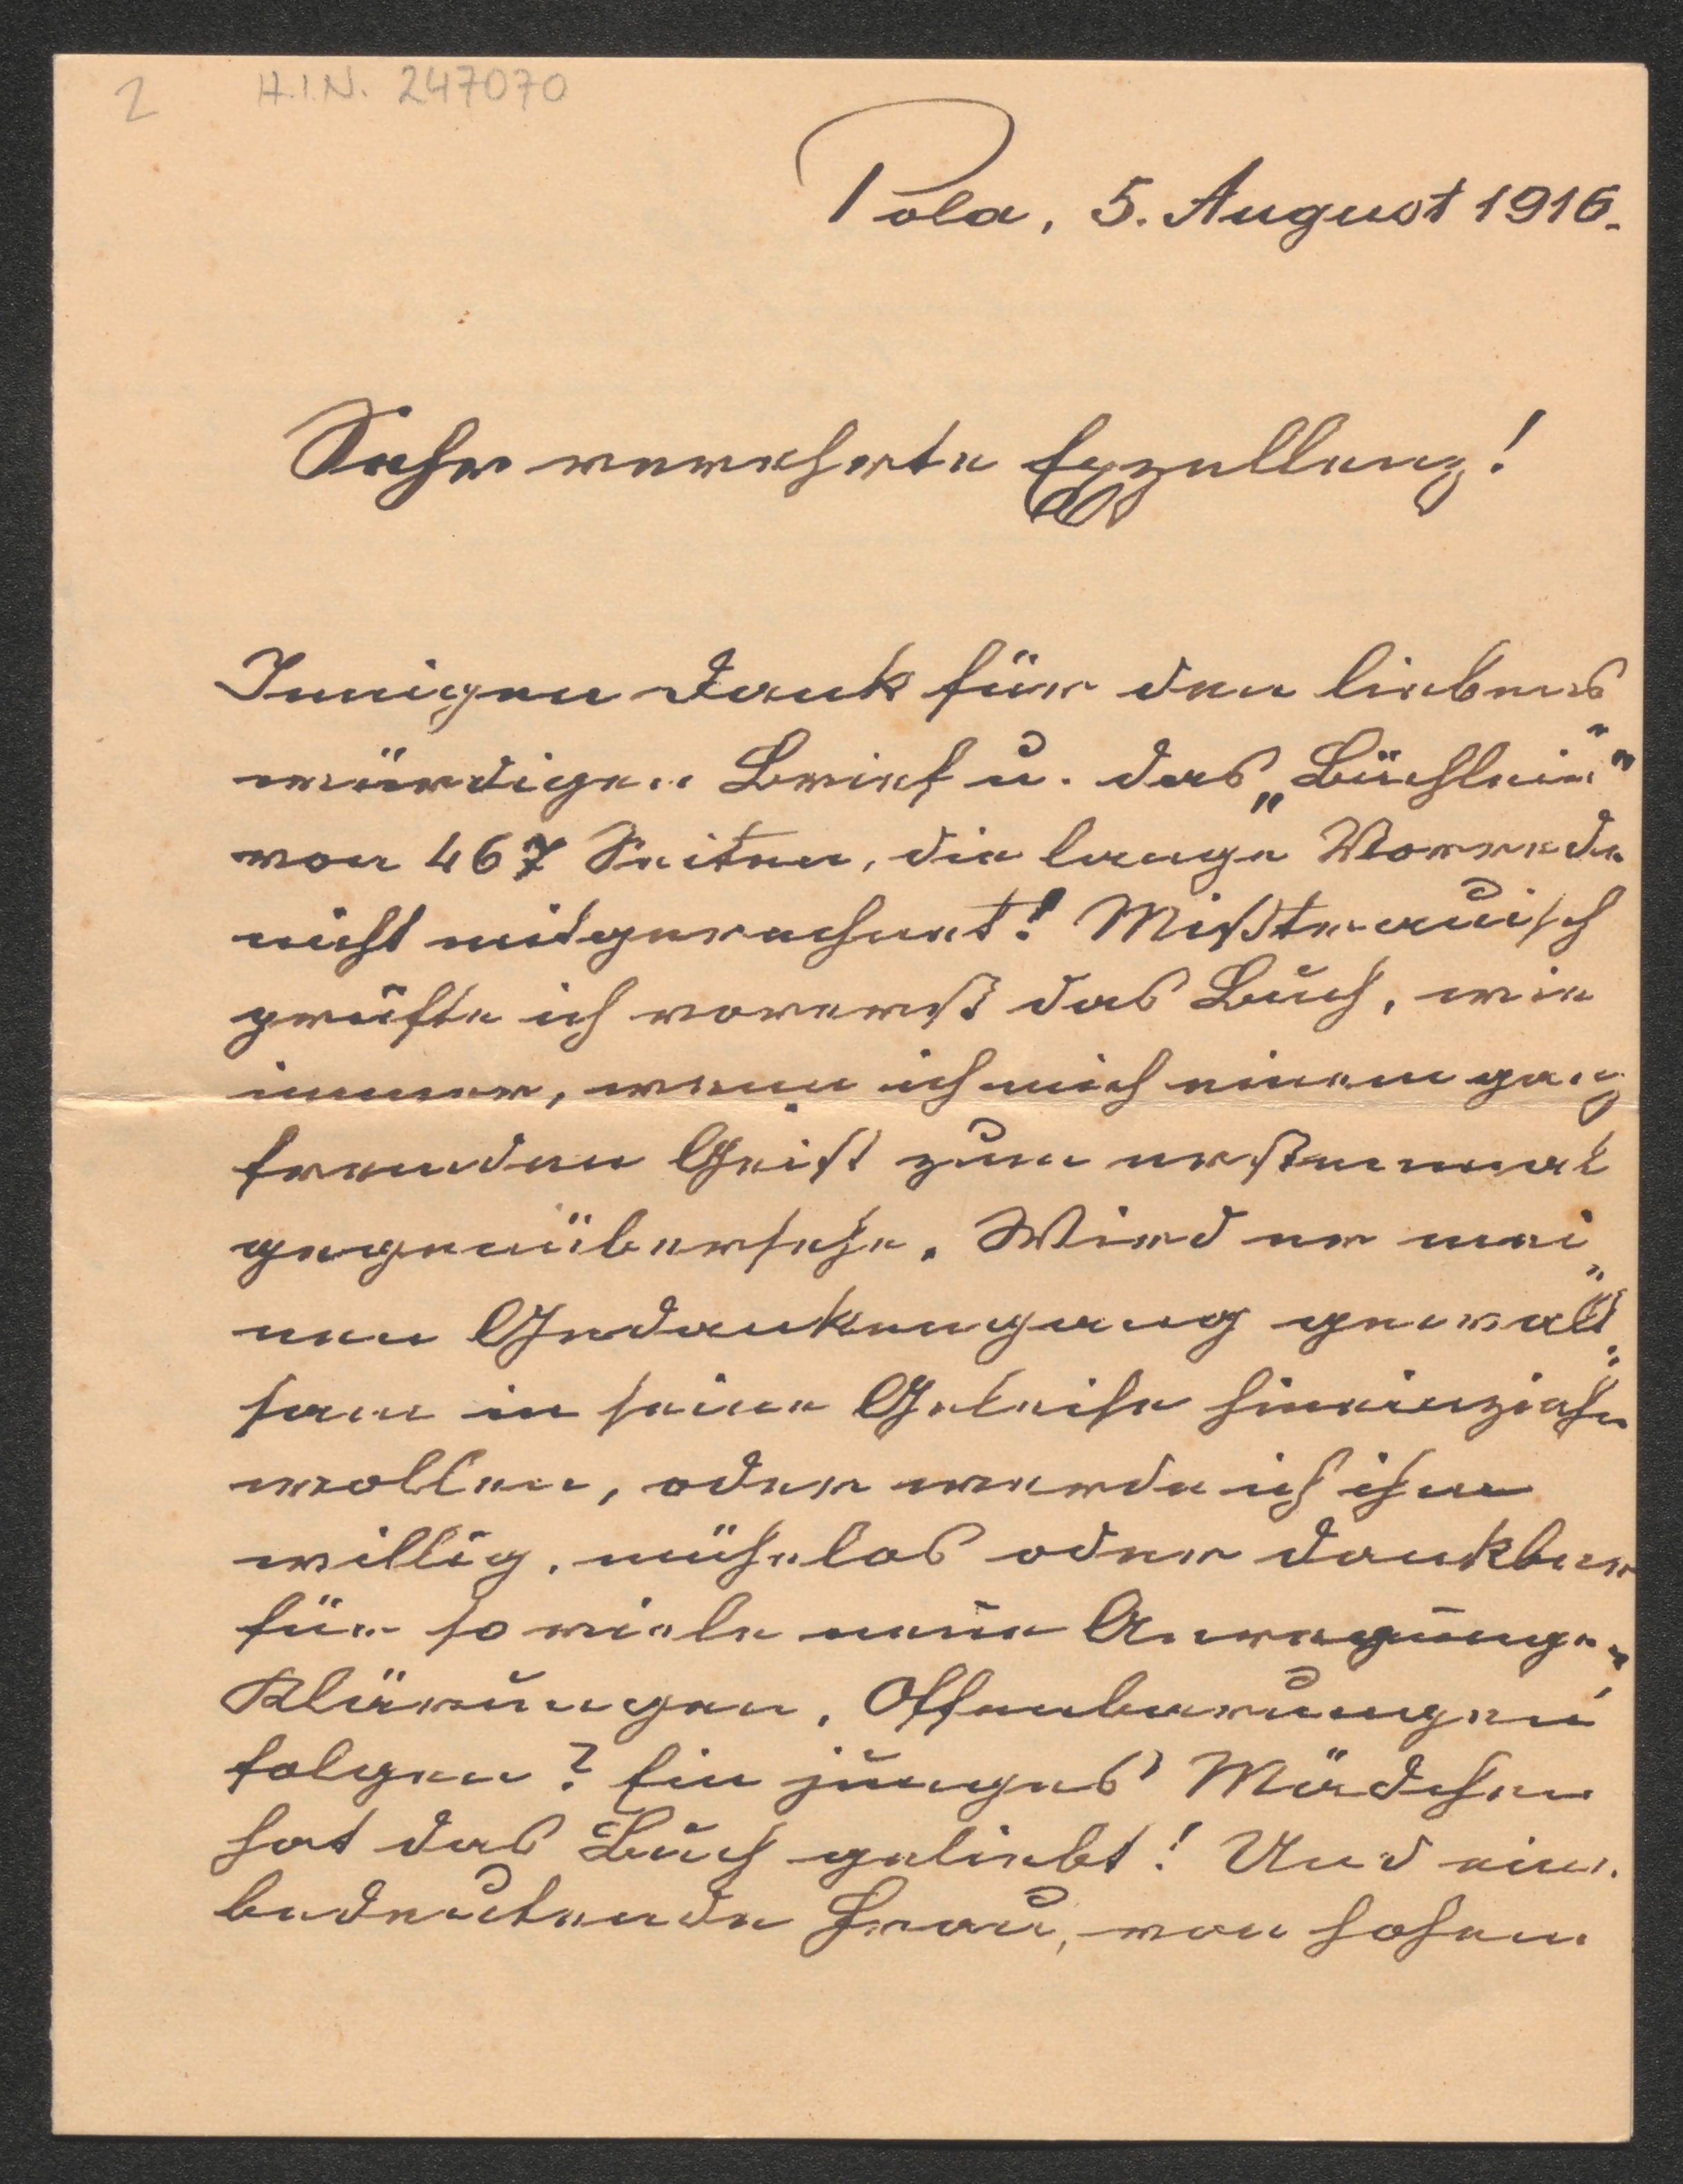 2 H.I.N. 247070
Pola, 5. August 1916.
Sehr verehrte Exzellenz!
Innigen Dank für den liebens
würdigen Brief u. das „Büchlein"
von 467 Seiten, die lange Vorrede
nicht mitgerechnet! Mißtrauisch
prüfte ich vorerst das Buch, wie
immer, wenn ich mich einem ganz
fremden Geist zum erstenmal
gegenübersehe. Wird er mei„
nen Gedankengang gewalt„
sam in seine Geleise hineinziehen
wollen, oder werde ich ihm
willig, mühelos oder dankbar
für so viele neue Anregungen,
Klärungen, Offenbarungen
folgen? Ein junges Mädchen
hat das Buch geliebt! Und eine
bedeutende Frau, von hohem